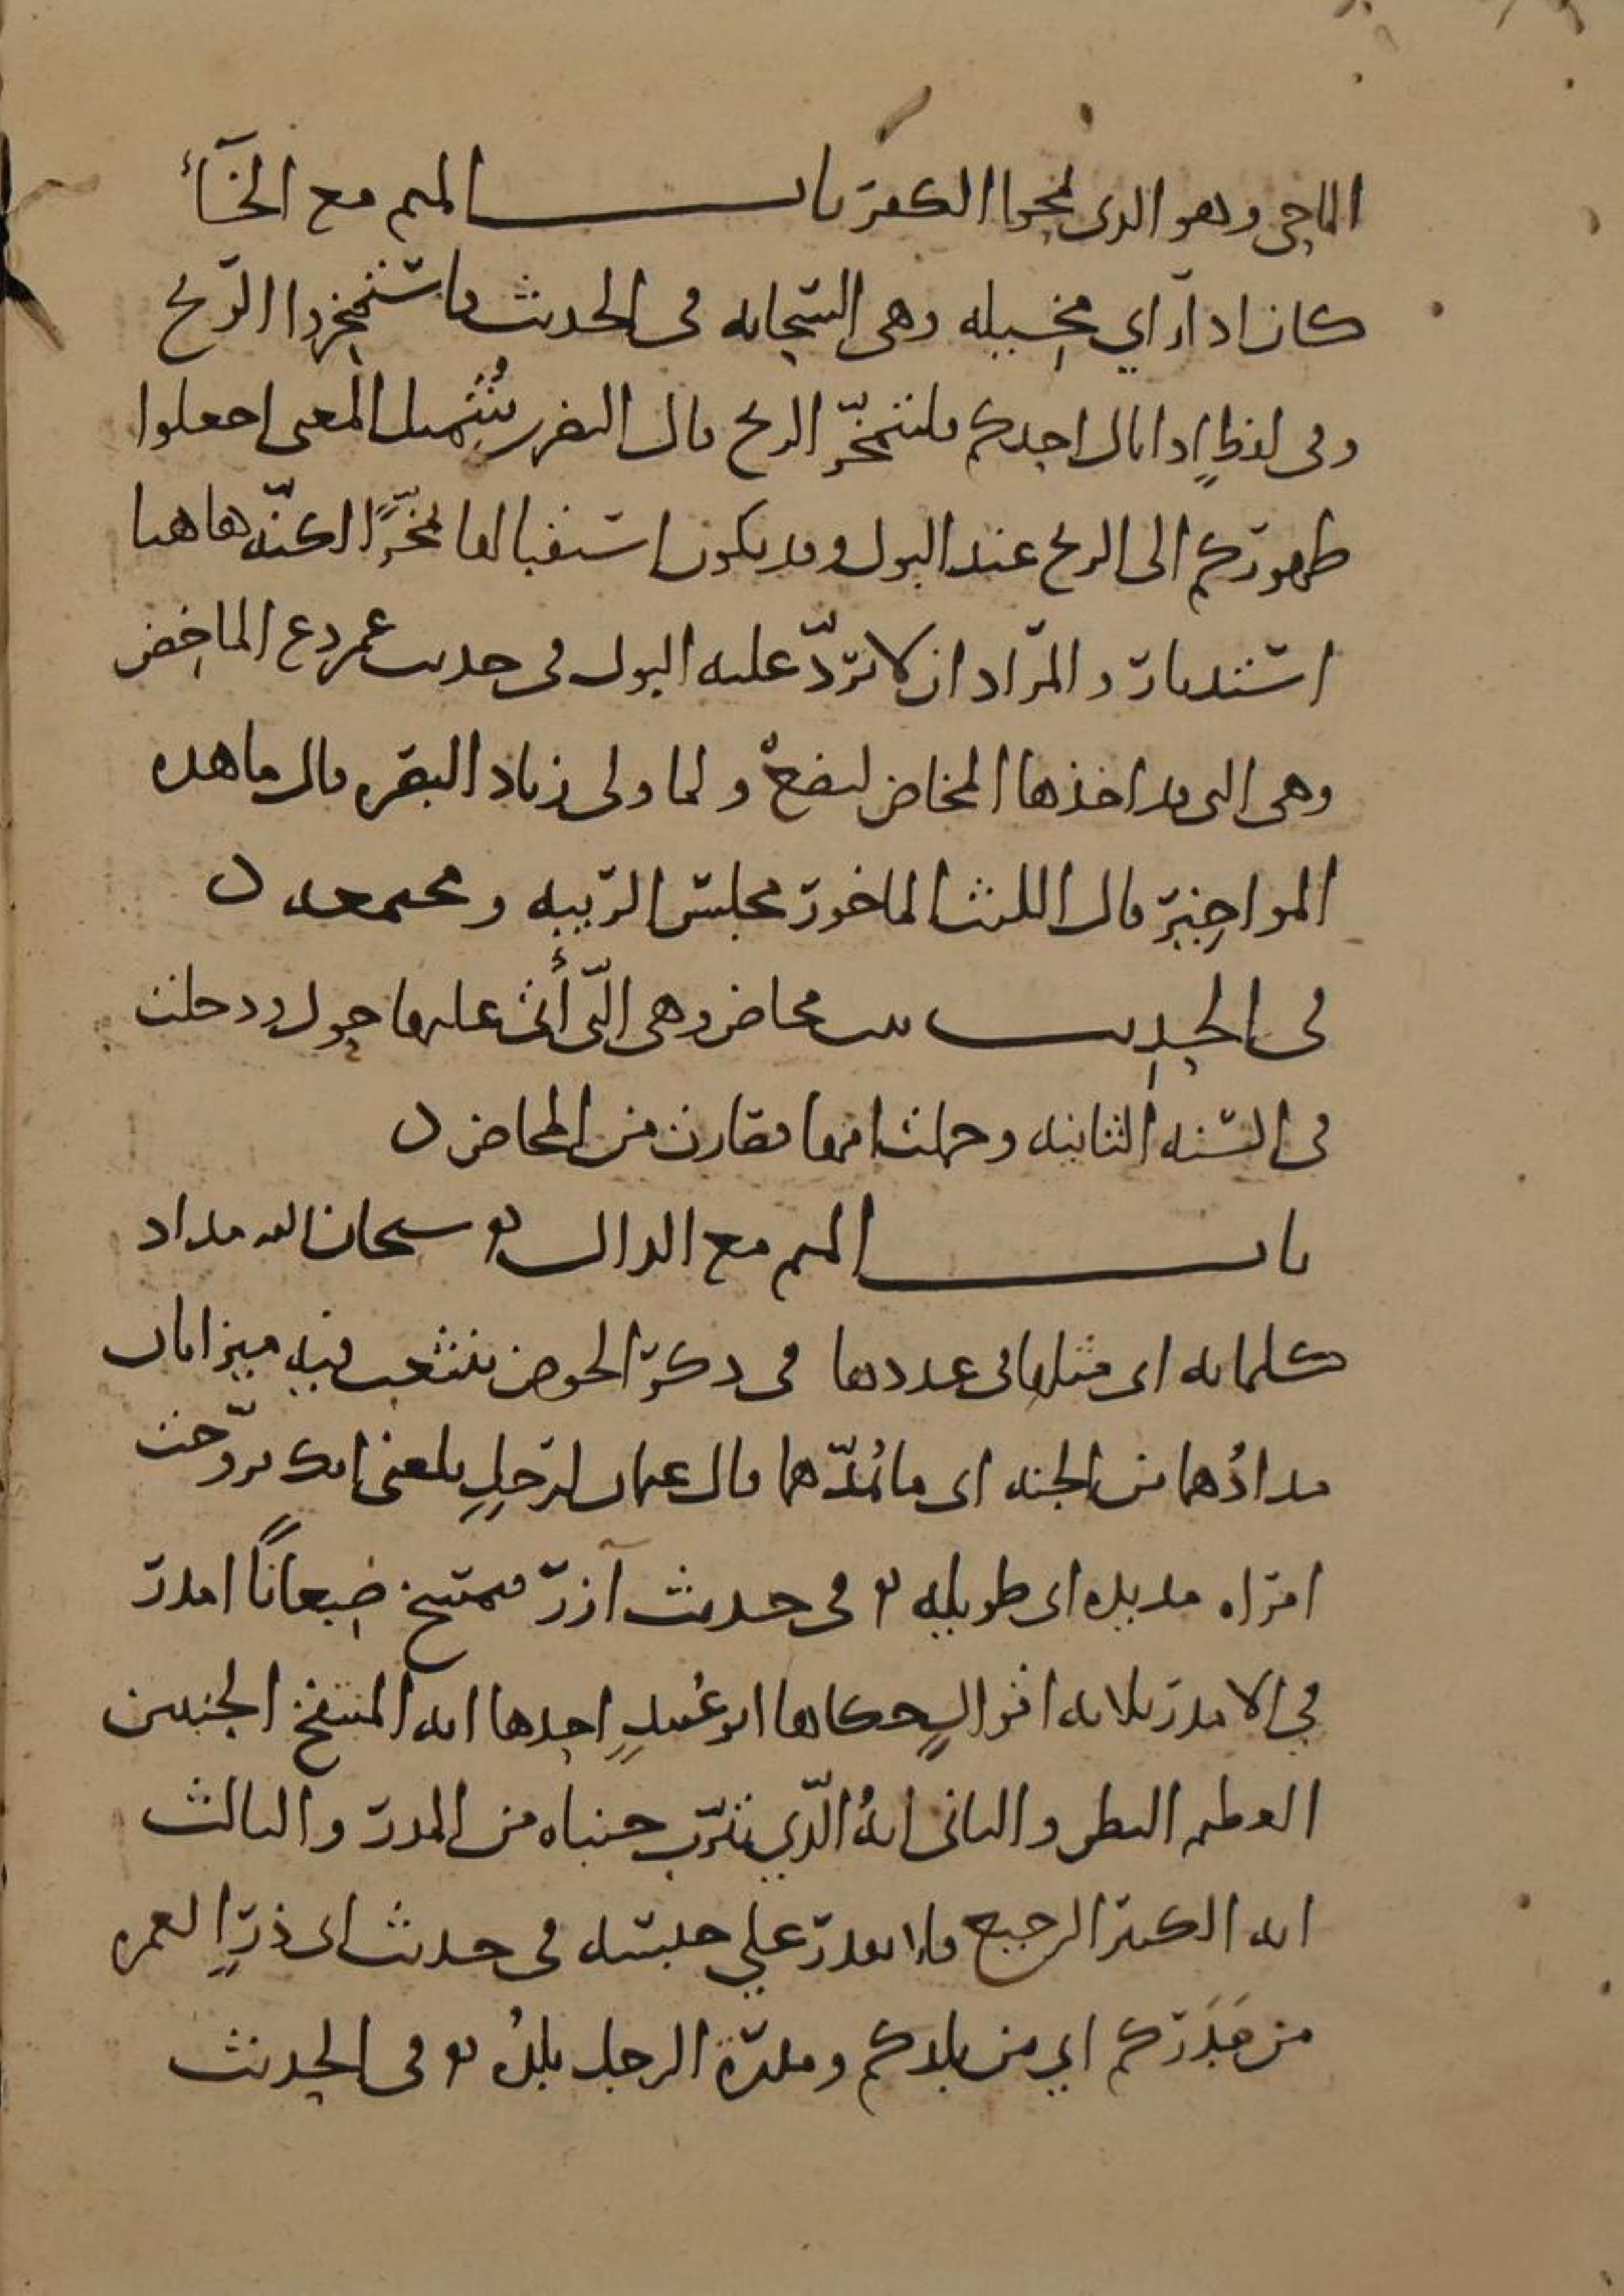 الماحي وهو الذي يمحوا الكفر باب الميم مع الخاء
كان اذا رأي مخيله وهي السحابه في الحديث فاستمخروا الريح
وفي لفظٍ اذا بال احدكم فليتمخّر الريح قال النضر بن شُمَيل المعنى اجعلوا
ظهوركم الى الريح عند البول وقد يكون استقبالها تمخّرًا لكنّه هاهنا
استدبار والمراد ان لا تردّ عليه البول في حديث عمر دع الماخِض
وهي التي قد اخذها المخاض لتضع ولما ولى زياد البصره قال ما هذه
المواخير قال الليث الماخور مجلس الريبه ومجتمعه ن
في الحديث بنت مخاض وهي الّتي أتى عليها حول ودخلت
في السنه الثانيه وحملت امها فصارت من المخاض ن
باب الميم مع الدال سبحان الله مداد
كلماته اى مثلها فى عددها في ذكر الحوض ينثعب فيه ميزابان
مدادُهما من الجنه اى ما يُمدّهما قال عثمان لرجلٍ بلغني انك تزوّجت
امراه مديده اى طويله في حديث آزر فيمسخ ضِبعانًا امدر
في الامدر ثلاثه اقوالٍ حكاها ابو عُبيدٍ احدها انه المنتفخ الجنبين
العظيم البطن والثانى انهُ الّذي تترّب جنباه من المدر والثالث
انه الكثير الرجيع فلا يقدر علي حبسه في حديث ابى ذرٍّ العمره
من مَدَركم اي من بلدكم ومدرة الرجل بلدُه في الحديث